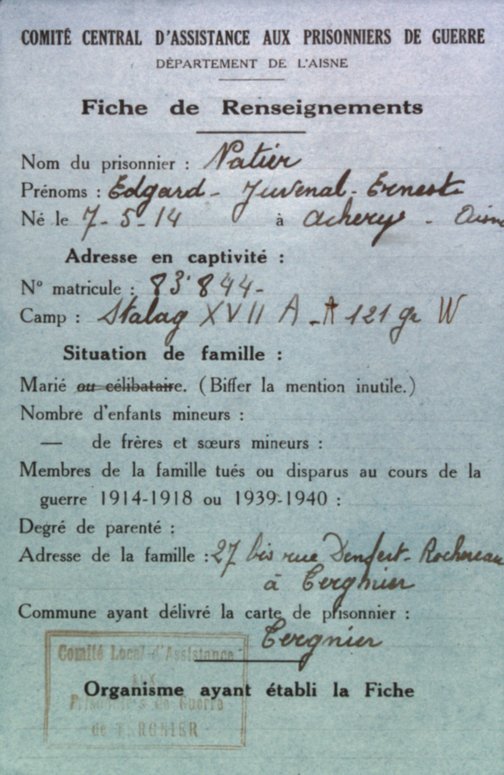 COMITÉ CENTRAL D'ASSISTANCE AUX PRISONNIERS DE GUERRE
DÉPARTEMENT DE L'AISNE
Fiche de Renseignements
Nom du prisonnier : Natier
Prénoms : Edgard - Juvenal - Ernest
Né le 7-5-14 à Achery - Aisne
Adresse en captivité :
N° matricule : 83.844-
Camp : Stalag XVII A - A 121 gr W
Situation de famille :
Marié ou célibataire. (Biffer la mention inutile.)
Nombre d'enfants mineurs :
— de frères et sœurs mineurs :
Membres de la famille tués ou disparus au cours de la
guerre 1914-1918 ou 1939-1940 :
Degré de parenté :
Adresse de la famille : 27 bis rue Denfert-Rochereau
à Tergnier
Commune ayant délivré la carte de prisonnier :
Tergnier
Comité Local d'Assistance
aux
Prisonniers de Guerre
de TERGNIER
Organisme ayant établi la Fiche